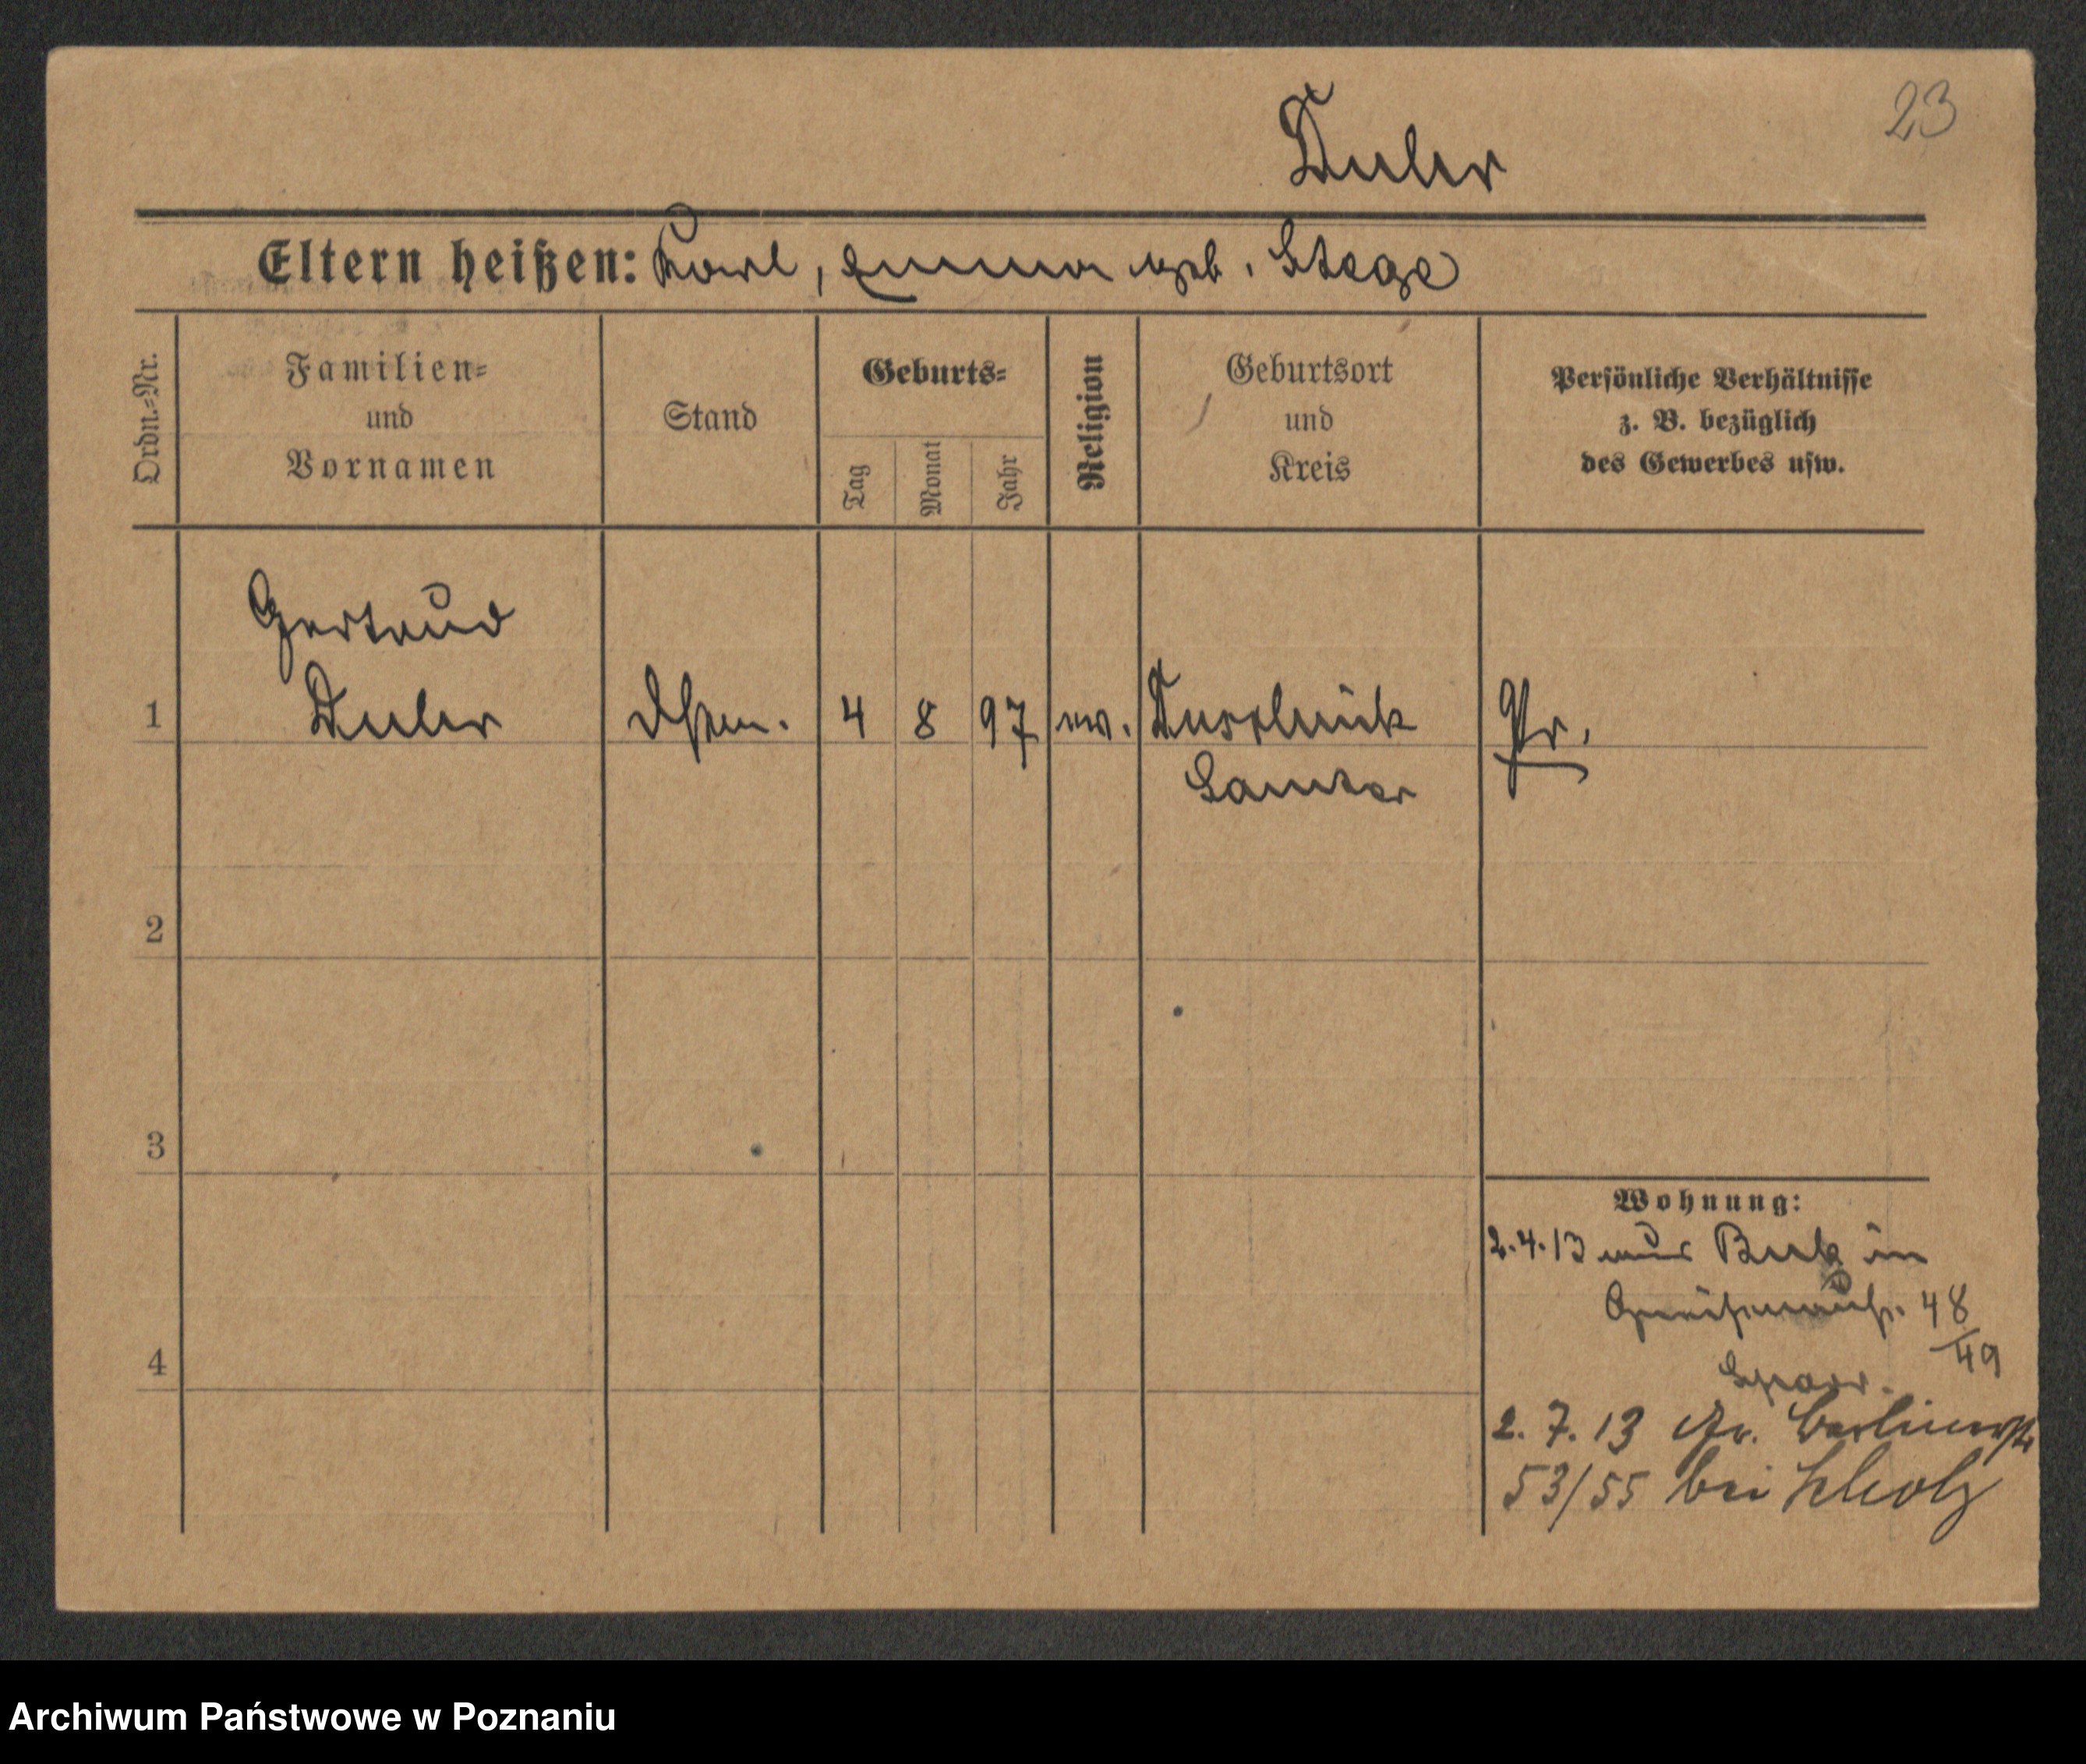 23
Duler
Eltern heißen: Karl, Emma geb. Stege
Ordn.-Nr.
Familien-
und
Vornamen
Stand
Geburts-
Tag
Monat
Jahr
Religion
Geburtsort
und
Kreis
Persönliche Verhältnisse
z. B. bezüglich
des Gewerbes usw.
Gertrud
1 Duler 4 8 97 ev.
Samter
Pr.
2
3
4
Wohnung:
2.4.13 aus Buk in
Gneisenaustr. 48
/49
2.7.13 Berlinerstr
53/55 bei
Archiwum Państwowe w Poznaniu